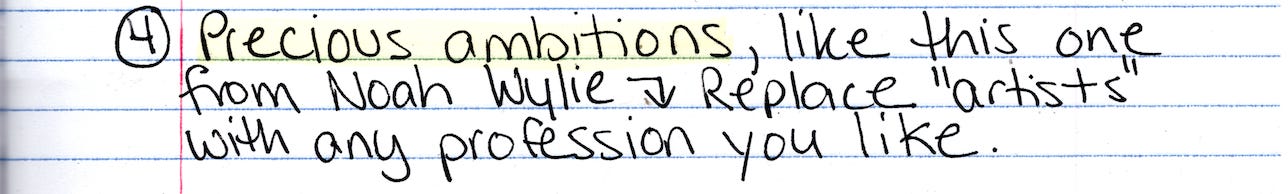 ④ Precious ambitions, like this one
from Noah Wylie ↓ Replace "artists"
with any profession you like.